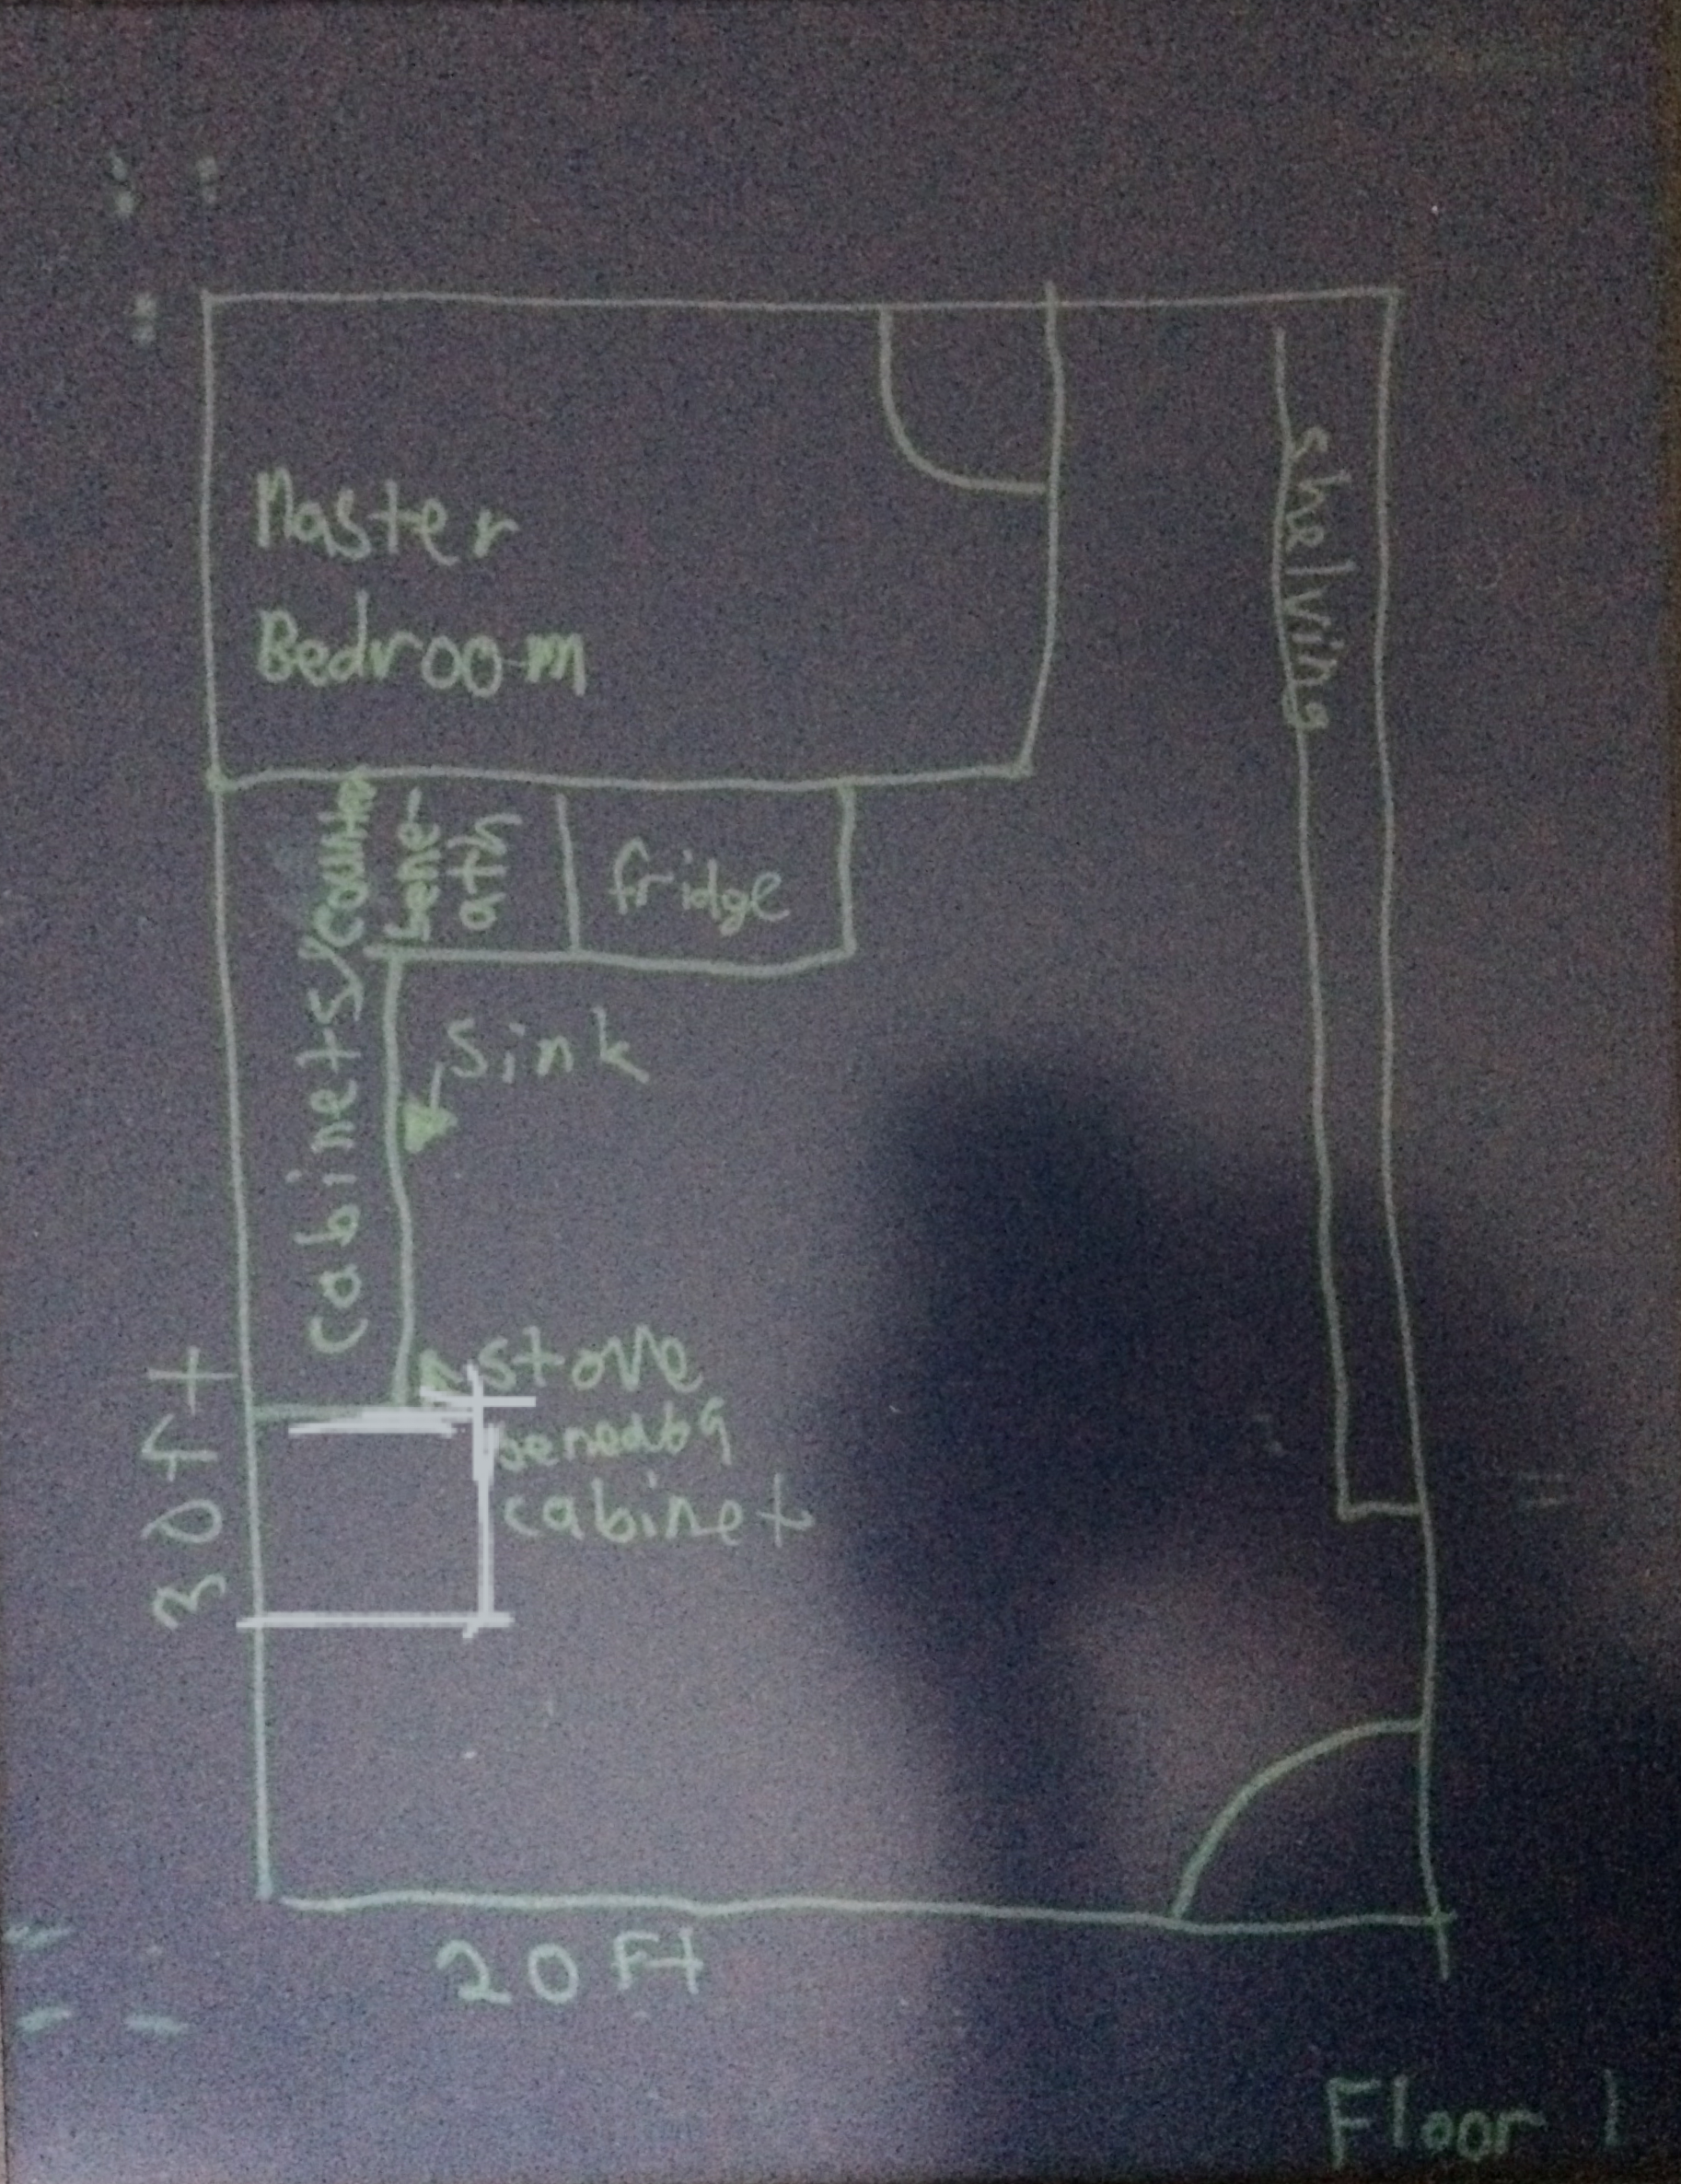 Master
Bedroom
shelving
cabinets/counter
bene-
ath
fridge
sink
stove
cabinet
30ft
20 Ft
Floor 1